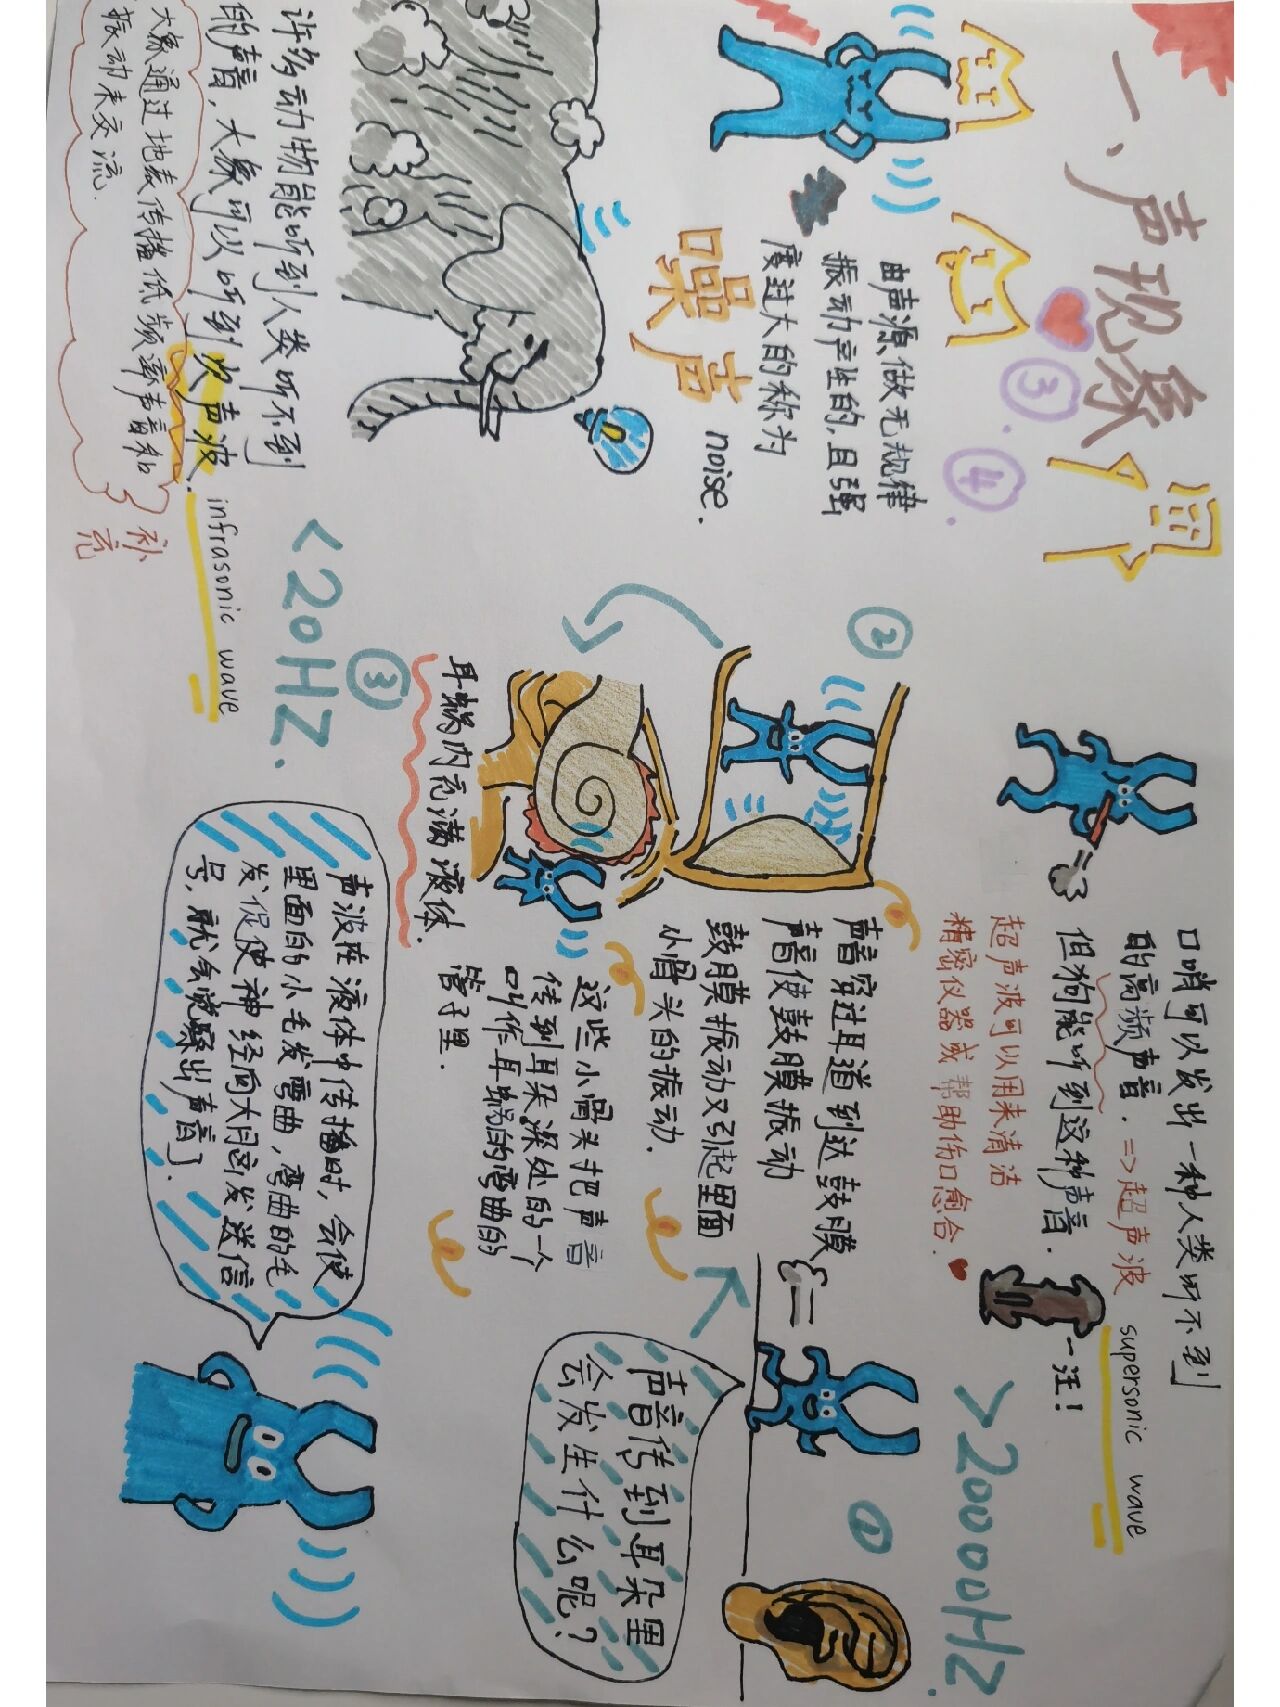 一、声现象
③.
④.
由声源做无规律
振动产性的,且强
度过大的称为
噪声
noise.
许多动物能听到人类听不到
的声音,大象可以听到次声波.
infrasonic wave
大象通过地表传播低频率声音和
振动来交流.
补充
<20HZ.
口哨可以发出一种人类听不到
的高频声音. =>超声波
supersonic wave
但狗能听到这种声音.
汪!
超声波可以用来清洁
精密仪器或帮助伤口愈合.
>20000HZ.
①
声音传到耳朵里
会发生什么呢?
②
声音穿过耳道到达鼓膜
声音使鼓膜振动
鼓膜振动又引起里面
小骨头的振动.
这些小骨头把声音
传到耳朵深处的一个
叫作耳蜗的弯曲的
管子里.
③
耳蜗内充满液体.
声波在液体中传播时,会使
里面的小毛发弯曲,弯曲的毛
发促使神经向大脑发送信
号,就会觉察出声音了.